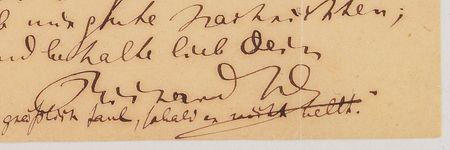 mir gute Nachrichten;
und behalte lieb Dein
Richard W
gräßlich faul, sobald er nicht bellt."